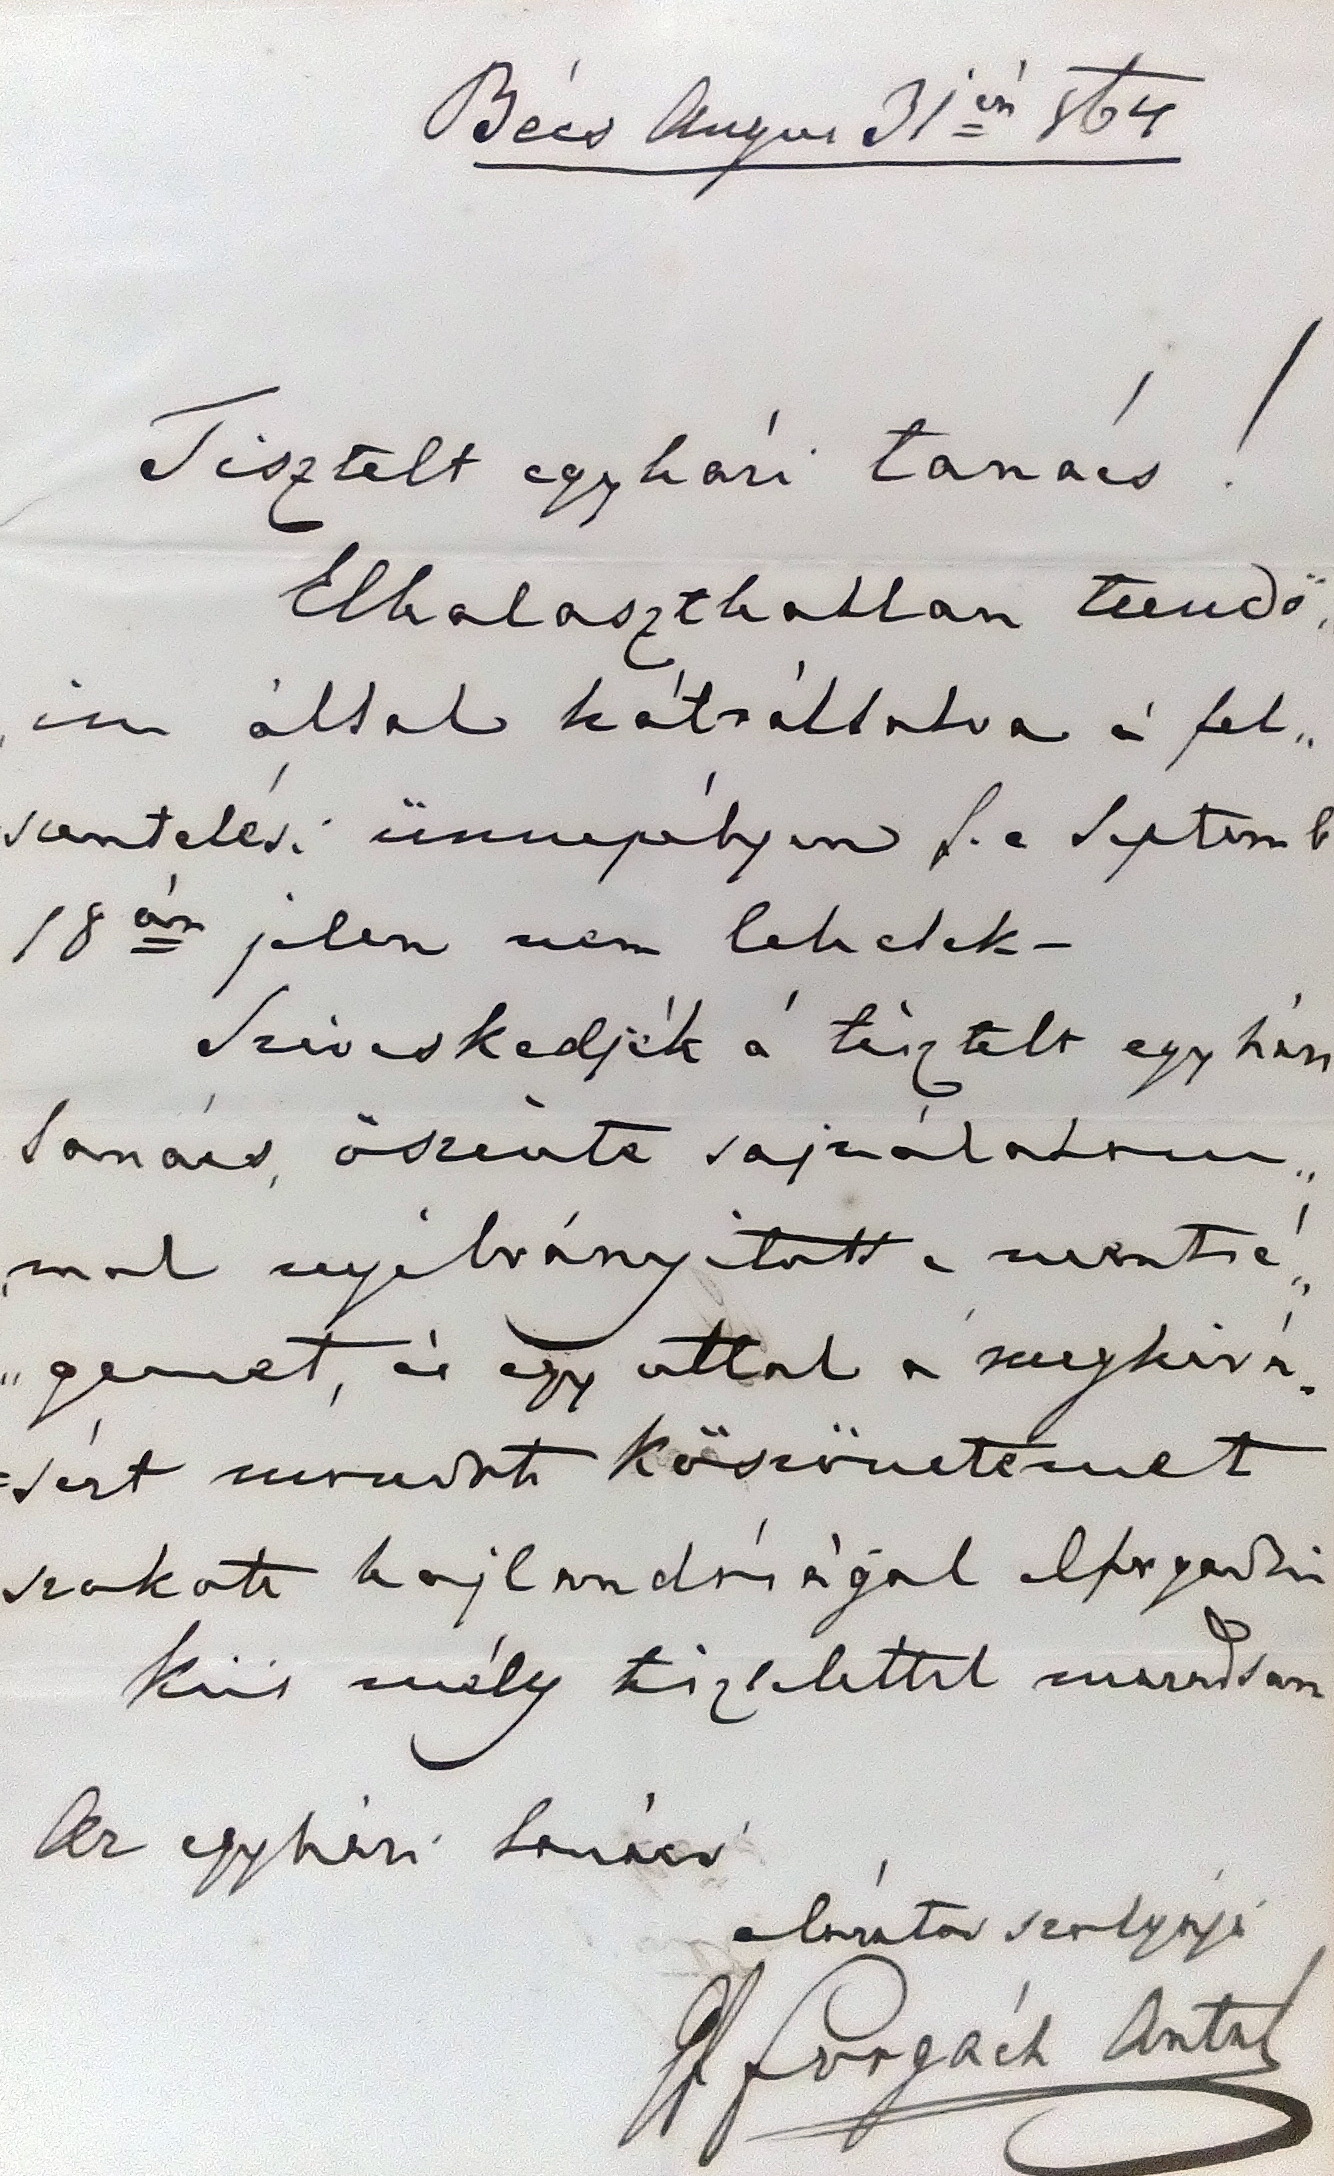 Bécs Augus 31jén 864
Tisztelt egyházi tanács!
Elhalaszthatlan teendő„
„im által hátráltatva á fel„
szentelési ünnepélyen f. e Septemb
18án jelen nem lehetek –
Sziveskedjék á tisztelt egyházi
tanács, öszinte sajnálatom„
„mal nyilványitott e mentsé„
„gemet, és egy uttal a meghivá„
„sért mondott köszönetemet
szokott hajlandóságal elfogadni
Kiis mély tisztelettel maradtam
Az egyházi tanács
alázatos szolgája
Gf Forgách Antal